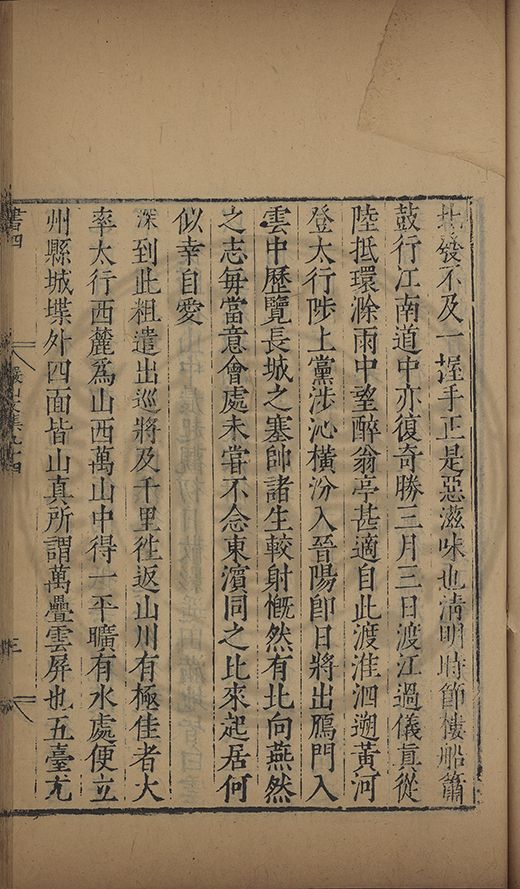 北發不及一握手正是惡滋味也清明時節樓船簫
鼓行江南道中亦復奇勝三月三日渡江過儀真從
陸抵環滁雨中望醉翁亭甚適自此渡淮泗遡黃河
登太行陟上黨涉沁橫汾入晉陽即日將出鴈門入
雲中歷覽長城之塞帥諸生較射慨然有北向燕然
之志每當意會處未嘗不念東濱同之比來起居何
似幸自愛
深到此粗遣出巡將及千里徃返山川有極佳者大
率太行西麓爲山西萬山中得一平曠有水處便立
州縣城堞外四面皆山真所謂萬疊雲屏也五臺尤
書四
三